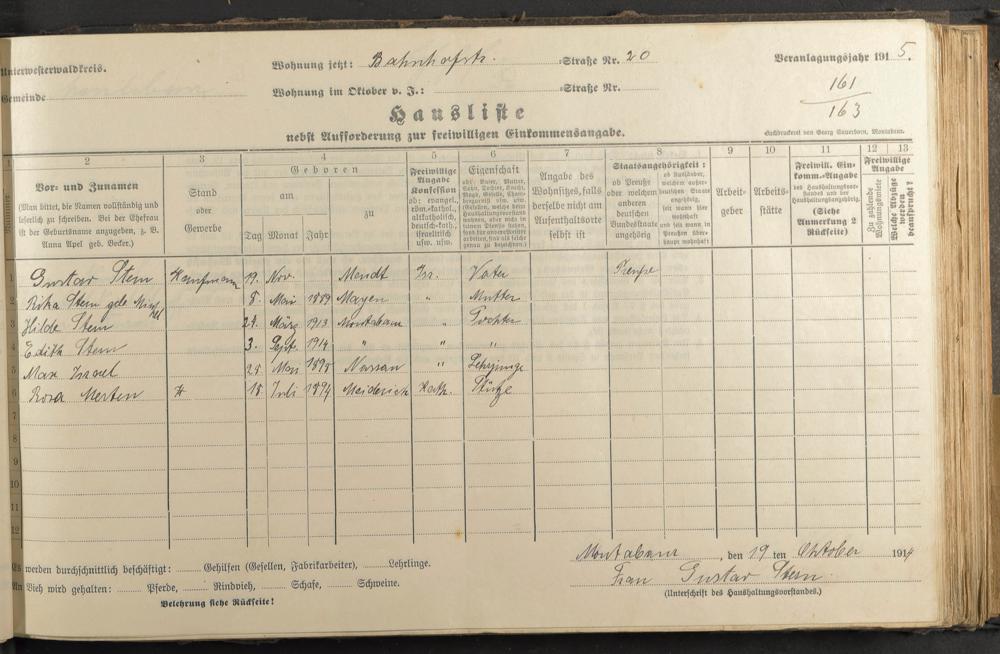 Unterwesterwaldkreis.
Wohnung jetzt: Bahnhofstr. Straße Nr. 20
Veranlagungsjahr 1915.
Gemeinde
Wohnung im Oktober v. J.: Straße Nr.
161
163
Hausliste
nebst Aufforderung zur freiwilligen Einkommensangabe.
Buchdruckerei von Georg Sauerborn, Montabaur.
1 2 3 4 5 6 7 8 9 10 11 12 13
Nummer
Vor- und Zunamen
(Man bittet, die Namen vollständig und
leserlich zu schreiben. Bei der Ehefrau
ist der Geburtsname anzugeben, z. B.
Anna Apel geb. Becker.)
Stand
oder
Gewerbe
Geboren
am
zu
Tag Monat Jahr
Freiwillige
Angabe
Konfession
ob: evangel.,
röm.-kathol.,
altkatholisch,
deutsch-kath.,
israelitisch
usw. usw.
Eigenschaft
ob: Vater, Mutter,
Sohn, Tochter, Knecht,
Magd, Geselle, Cham-
bergarnist usw. usw.
Angabe des
Wohnsitzes, falls
derselbe nicht am
Aufenthaltsorte
selbst ist
Staatsangehörigkeit:
ob Preuße
oder welchem
anderen
deutschen
Bundesstaate
angehörig
ob Ausländer,
welchem außer-
deutschen Staate
angehörig,
seit wann hier
wohnhaft
und seit wann in
Preußen über-
haupt wohnhaft
Arbeit-
geber
Arbeits-
stätte
Freiwill. Ein-
komm.-Angabe
des Haushaltungsvor-
standes und der
Haushaltungsangehörig.
(Siehe
Anmerkung 2
Rückseite)
Freiwillige
Angabe
Zu zahlende
Wohnungsmiete
Welche Abzüge
werden
beansprucht?
1 Gustav Stern Kaufmann 19. Nov. Mendt Isr. Vater Preuße
2 Rika Stern geb. 8. Mai 1889 Mayen " Mutter
3 Hilde Stern 24. März 1913 Montabaur " Tochter
4 Edith Stern 3. Sept. 1914 " " "
5 Max Israel 25. Mai 1898 Nassau " Lehrjunge
6 Rosa Merten 18. Juli 1894 Meiderich Kath. Stütze
7
8
9
10
11
12
Montabaur, den 19 ten Oktober 1914
Es werden durchschnittlich beschäftigt: Gehilfen (Gesellen, Fabrikarbeiter), Lehrlinge.
Frau Gustav Stern.
An Vieh wird gehalten: Pferde, Rindvieh, Schafe, Schweine.
(Unterschrift des Haushaltungsvorstandes.)
Belehrung siehe Rückseite!